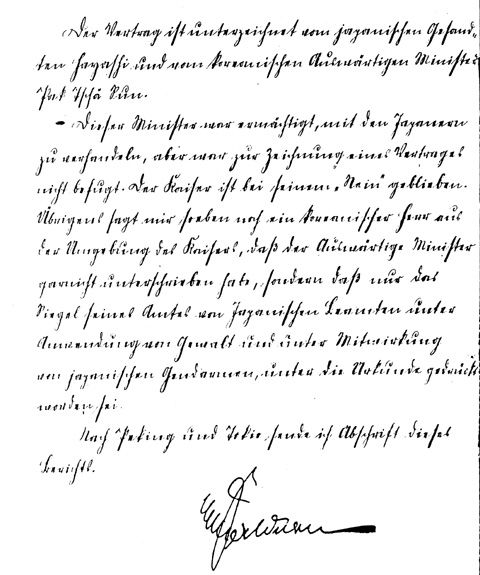 Der Vertrag ist unterzeichnet vom japanischen Gesand-
ten Hayashi und vom koreanischen Auswärtigen Minister
Pak Tschä Sun.
– Dieser Minister war ermächtigt, mit den Japanern
zu verhandeln, aber war zur Zeichnung eines Vertrages
nicht befugt. Der Kaiser ist bei seinem „Nein“ geblieben.
Übrigens sagt mir soeben noch ein koreanischer Herr aus
der Umgebung des Kaisers, daß der Auswärtige Minister
garnicht unterschrieben habe, sondern daß nur das
Siegel seines Amtes von Japanischen Beamten unter
Anwendung von Gewalt und unter Mitwirkung
von japanischen Gendarmen, unter die Urkunde gedrückt
worden sei.
Nach Peking und Tokio sende ich Abschrift dieses
Berichts.